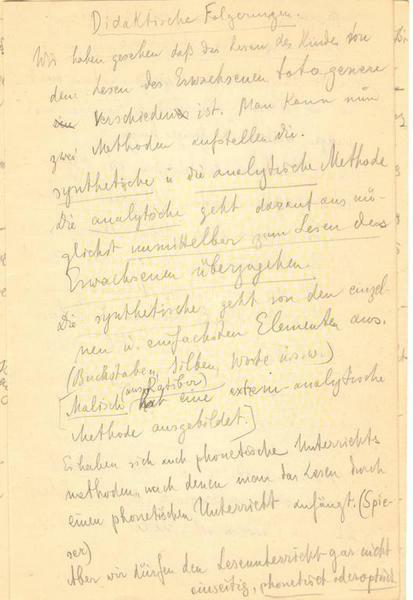 Didaktische Folgerungen.
Wir haben gesehen daß das Lesen des Kindes von
dem Lesen des Erwachsenen toto genere
verschieden ist. Man kann nun
zwei Methoden aufstellen die.
synthetische u die analytische Methode
Die analytische geht darauf aus mö-
glichst unmittelbar zum Lesen des
Erwachsenen überzugehen.
Die synthetische geht von den einzel-
nen u. einfachsten Elementen aus.
(Buchstaben, Silben, Worte u.s.w.)
(aus Ratibor)
[Malisch hat eine extrem-analytische
Methode ausgebildet.]
Es haben sich auch phonetische Unterrichts
methoden, nach denen man das Lesen durch
einen phonetischen Unterricht anfängt. (Spie-
ser)
Aber wir dürfen den Leseunterricht gar nicht
einseitig, phonetisch oder optisch